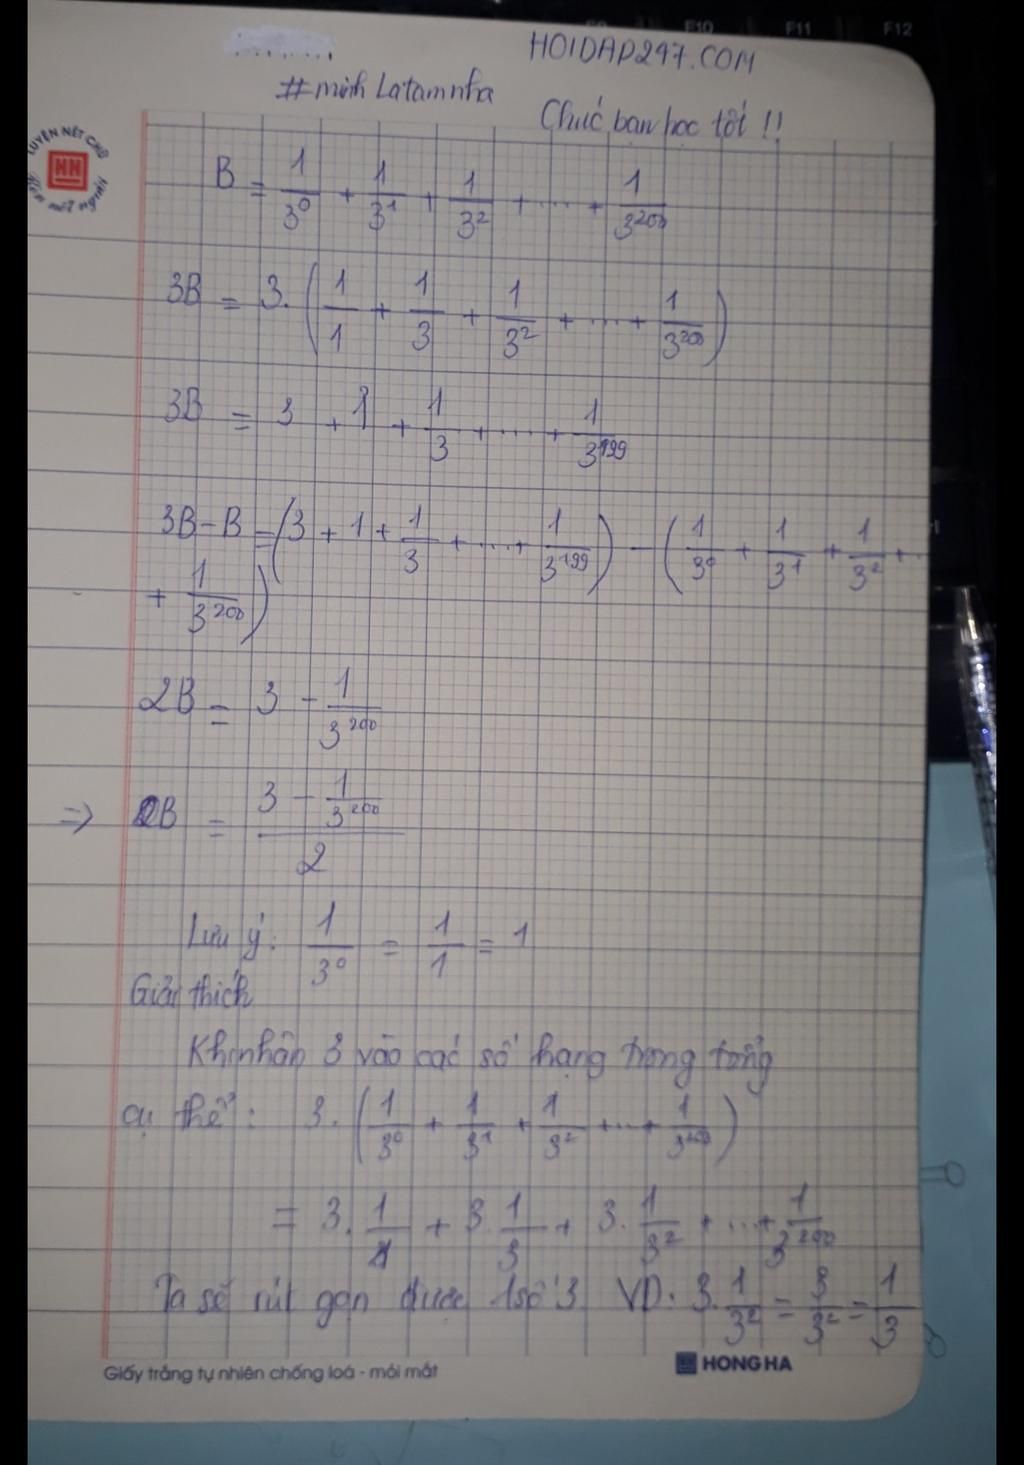 F10 F11 F12
HOIDAP247.COM
#minhLatamnha
Chúc bạn học tốt !!
LUYỆN NÉT CHỮ
HH
B = 1/3^0 + 1/3^1 + 1/3^2 + ... + 1/3^200
3B = 3.(1/1 + 1/3 + 1/3^2 + ... + 1/3^200)
3B = 3 + 1 + 1/3 + ... + 1/3^199
3B - B = (3 + 1 + 1/3 + ... + 1/3^199) - (1/3^0 + 1/3^1 + 1/3^2 + ..
+ 1/3^200)
2B = 3 - 1/3^200
=> B = (3 - 1/3^200)/2
Lưu ý: 1/3^0 = 1/1 = 1
Giải thích
Khi nhân 3 vào các số hạng trong tổng
cụ thể: 3.(1/3^0 + 1/3^1 + 1/3^2 + ... + 1/3^200)
= 3.1/1 + 3.1/3 + 3.1/3^2 + ... + 1/3^200
Ta sẽ rút gọn được 1 số 3 VD: 3.1/3^2 = 3/3^2 = 1/3
Giấy trắng tự nhiên chống loá - mỏi mắt
HONG HA